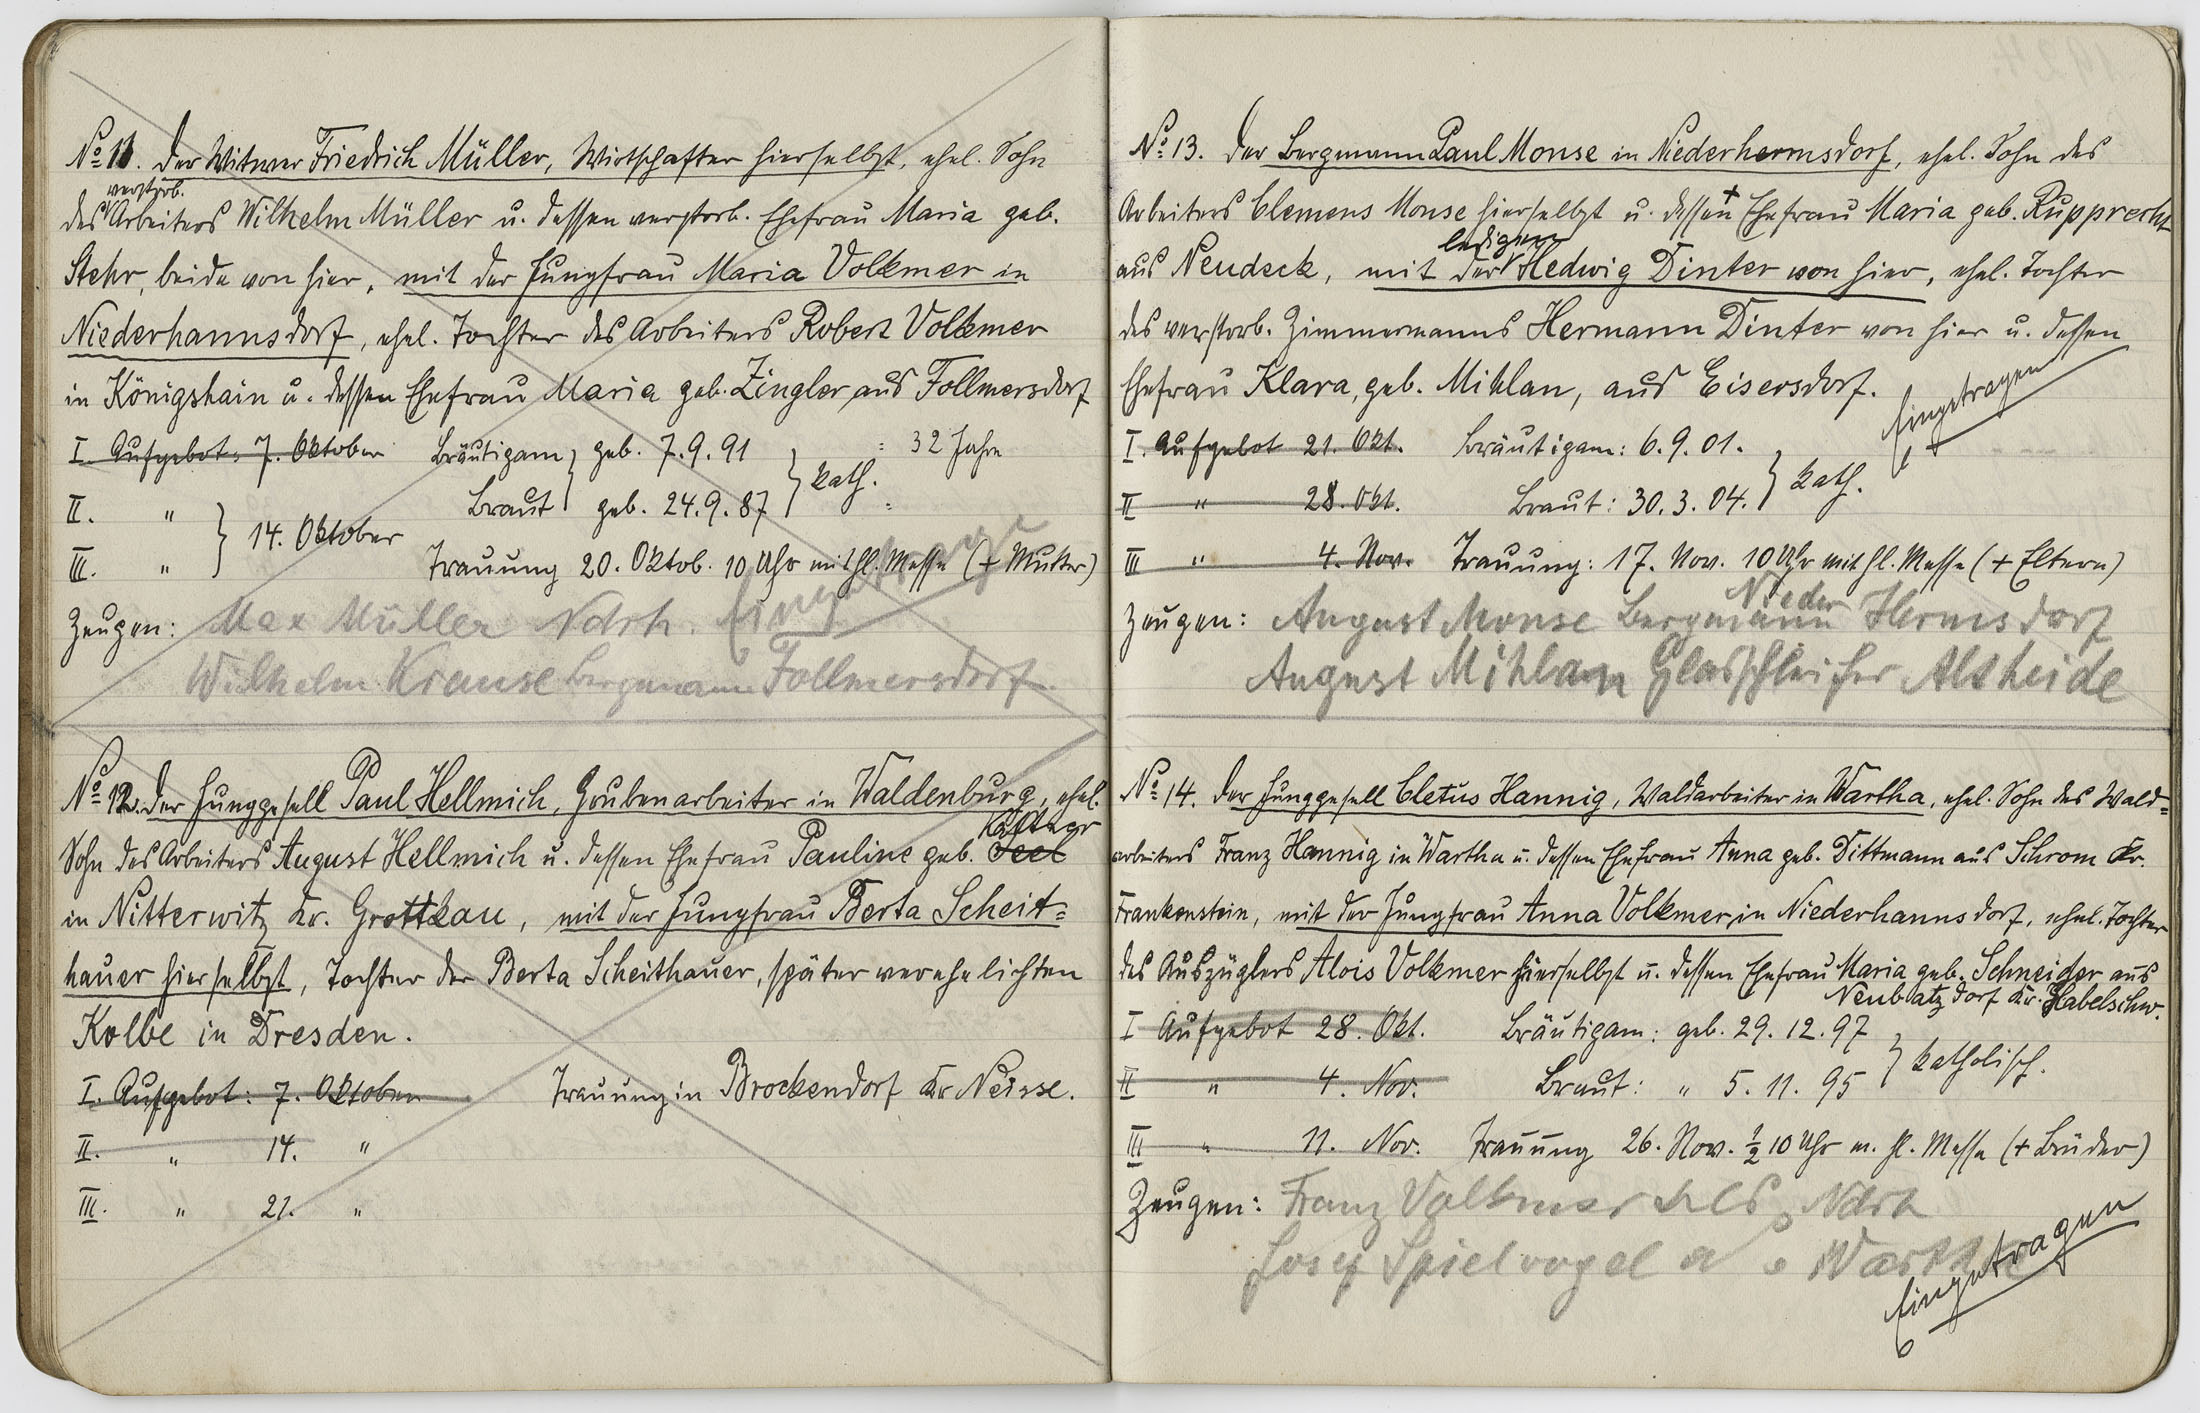 No 11. Der Witwer Friedrich Müller, Wirtschafter hierselbst, ehel. Sohn
verstorb.
des Arbeiters Wilhelm Müller u. dessen verstorb. Ehefrau Maria geb.
Stehr, beide von hier, mit der Jungfrau Maria Volkmer in
Niederhannsdorf, ehel. Tochter des Arbeiters Robert Volkmer
in Königshain u. dessen Ehefrau Maria geb. Zingler aus Follmersdorf
I. Aufgebot: 7. Oktober Bräutigam geb. 7.9.91 = 32 Jahre
II. " Braut geb. 24.9.87 kath.
III. " 14. Oktober Trauung 20. Oktob. 10 Uhr mit hl. Messe (+ Mutter)
Eingetragen
Zeugen: Max Müller Ndrh.
Wilhelm Krause Bergmann Follmersdorf.
No 12. Der Junggesell Paul Hellmich, Grubenarbeiter in Waldenburg, ehel.
Sohn des Arbeiters August Hellmich u. dessen Ehefrau Pauline geb.
in Nitterwitz Kr. Grottkau, mit der Jungfrau Berta Scheit=
hauer hierselbst, Tochter der Berta Scheithauer, später verehelichten
Kolbe in Dresden.
I. Aufgebot: 7. Oktober Trauung in Brockendorf Kr Neisse.
II. " 14. "
III. " 21. "
No 13. Der Bergmann Paul Monse in Niederhermsdorf, ehel. Sohn des
Arbeiters Clemens Monse hierselbst u. dessen + Ehefrau Maria geb. Rupprecht
ledigen
aus Neudeck, mit der Hedwig Dinter von hier, ehel. Tochter
des verstorb. Zimmermanns Hermann Dinter von hier u. dessen
Ehefrau Klara, geb. Mihlan, aus Eisersdorf.
Eingetragen
I. Aufgebot 21. Okt. Bräutigam: 6.9.01.
II " 28. Okt. Braut: 30.3.04. kath.
III " 4. Nov. Trauung: 17. Nov. 10 Uhr mit hl. Messe (+ Eltern)
Zeugen: August Monse Bergmann Nieder Hermsdorf
August Mihlan Glasschleifer Altheide
No 14. Der Junggesell Cletus Hannig, Waldarbeiter in Wartha, ehel. Sohn des Wald=
arbeiters Franz Hannig in Wartha u. dessen Ehefrau Anna geb. Dittmann aus Schrom Kr.
Frankenstein, mit der Jungfrau Anna Volkmer in Niederhannsdorf, ehel. Tochter
des Auszüglers Alois Volkmer hierselbst u. dessen Ehefrau Maria geb. Schneider aus
Neubatzdorf Kr. Habelschw.
I Aufgebot 28. Okt. Bräutigam: geb. 29.12.97
II " 4. Nov. Braut: " 5.11.95 katholisch.
III " 11. Nov. Trauung 26. Nov. ½10 Uhr m. hl. Messe (+ Brüder)
Zeugen: Franz Volkmer Ndrh
Josef Spielvogel Wartha
Eingetragen